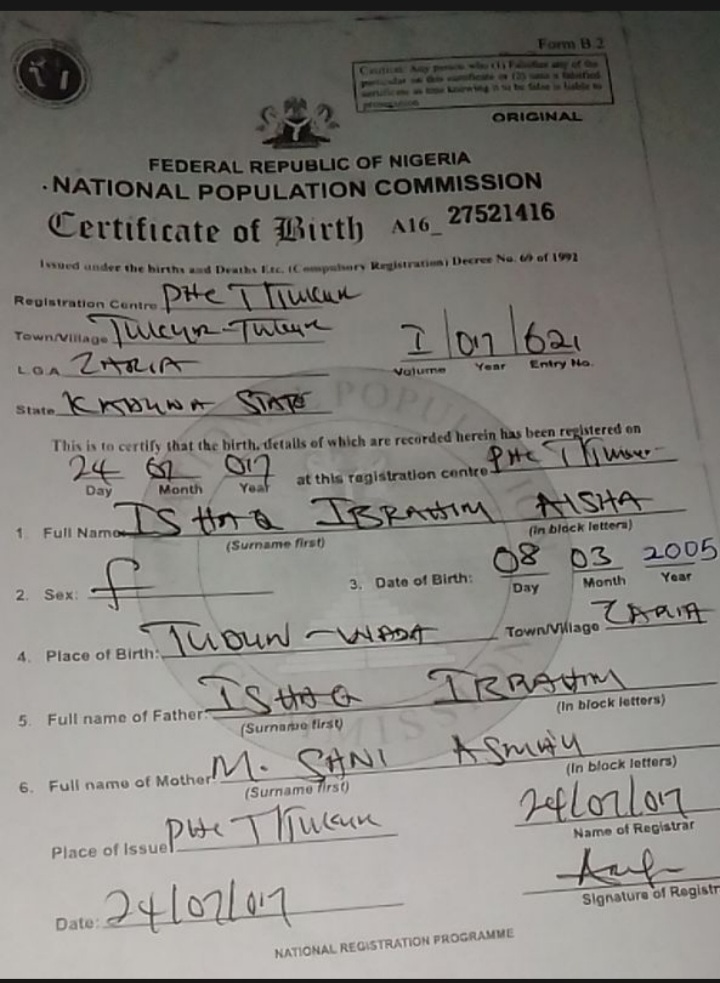 Form B 2
Caution: Any person who (1) Falsifies any of the
particular on this certificate or (2) uses a falsified
certificate as true knowing it to be false is liable to
prosecution
ORIGINAL
FEDERAL REPUBLIC OF NIGERIA
NATIONAL POPULATION COMMISSION
Certificate of Birth A16_ 27521416
Issued under the births and Deaths Etc. (Compulsory Registration) Decree No. 69 of 1992
Registration Centre PHC
Town/Village
I 017 621
Volume Year Entry No.
L.G.A ZARIA
State KADUNA STATE
This is to certify that the birth, details of which are recorded herein has been registered on
24 017 at this registration centre PHC
Day Month Year
1. Full Name ISHAQ IBRAHIM AISHA
(Surname first) (In block letters)
2. Sex: f 3. Date of Birth: 08 03 2005
Day Month Year
4. Place of Birth: TUDUN-WADA Town/Village ZARIA
5. Full name of Father: ISHAQ IBRAHIM
(Surname first) (In block letters)
6. Full name of Mother M. SANI ASMA'U
(Surname first) (In block letters)
Place of Issue PHC
24/07/017
Name of Registrar
Date: 24/07/017
Signature of Registr
NATIONAL REGISTRATION PROGRAMME